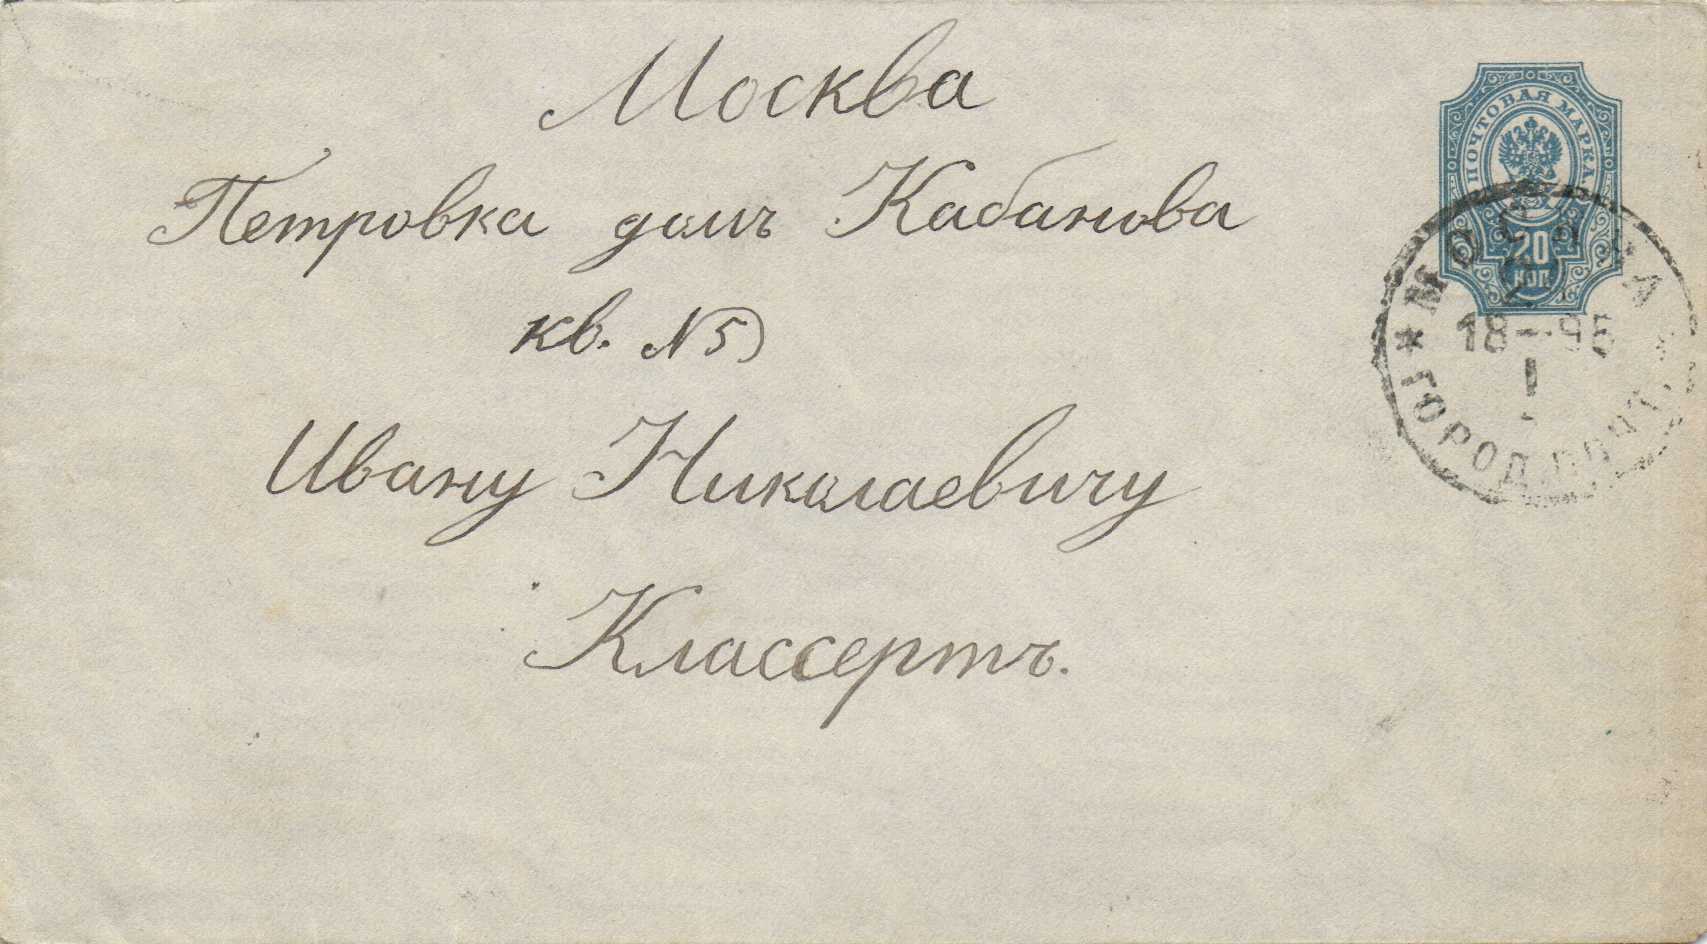 Москва
Петровка домъ Кабанова
кв. N 5
Ивану Николаевичу
Классертъ.
ПОЧТОВАЯ МАРКА
20
КОП.
МОСКВА
18 – 95
I
ГОРОД. ПОЧТ.